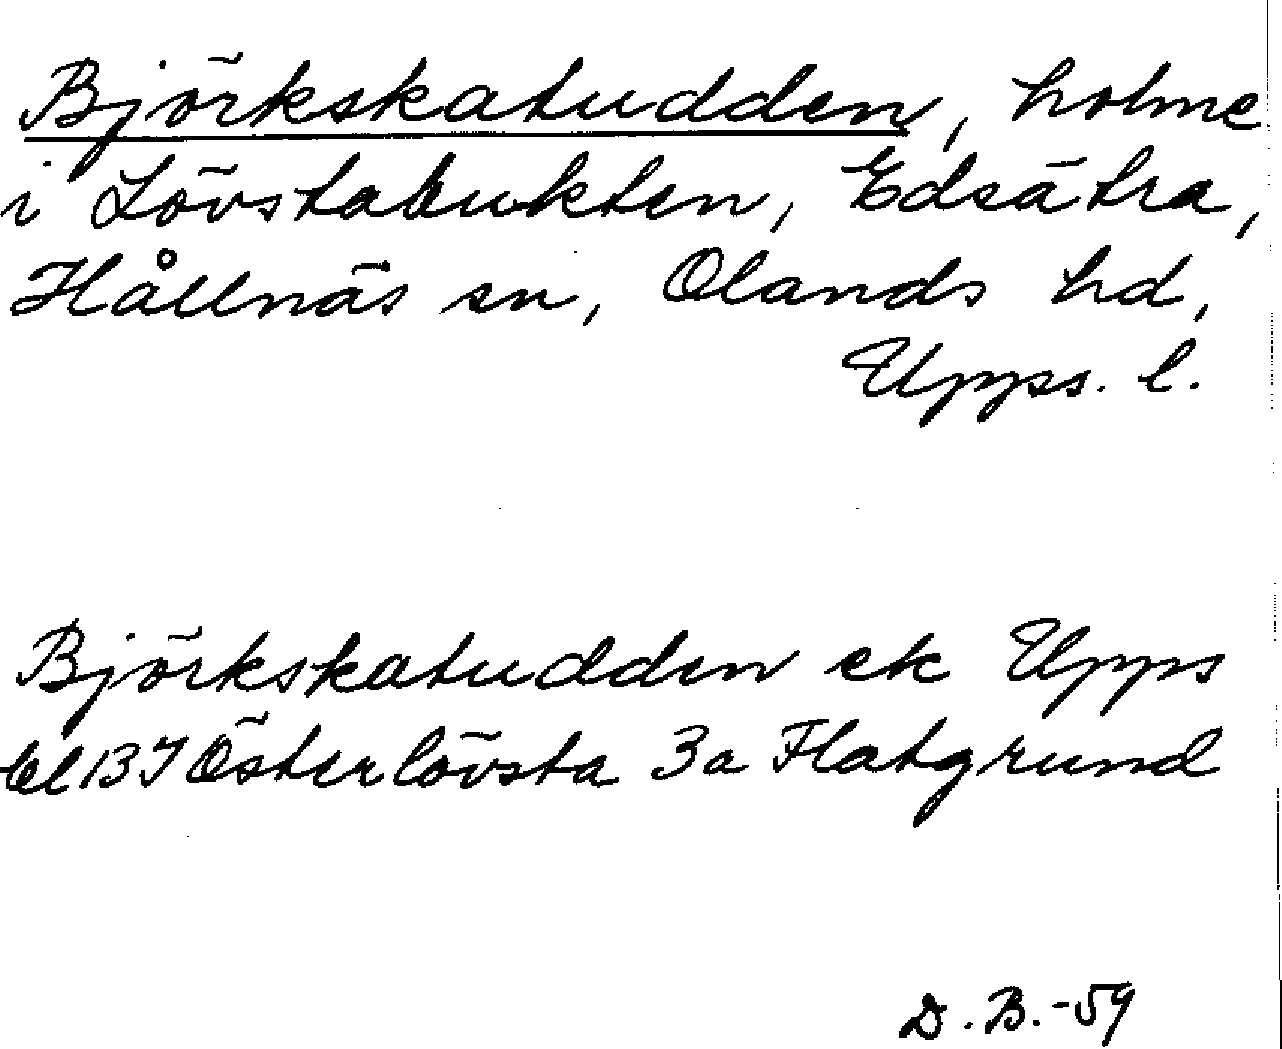 Björkskatudden, holme
i Lövstabukten, Edsätra,
Hållnäs sn, Olands hd,
Upps. l.
Björkskatudden ek Upps
bl 13 I Österlövsta 3a Flatgrund
D.B.-59